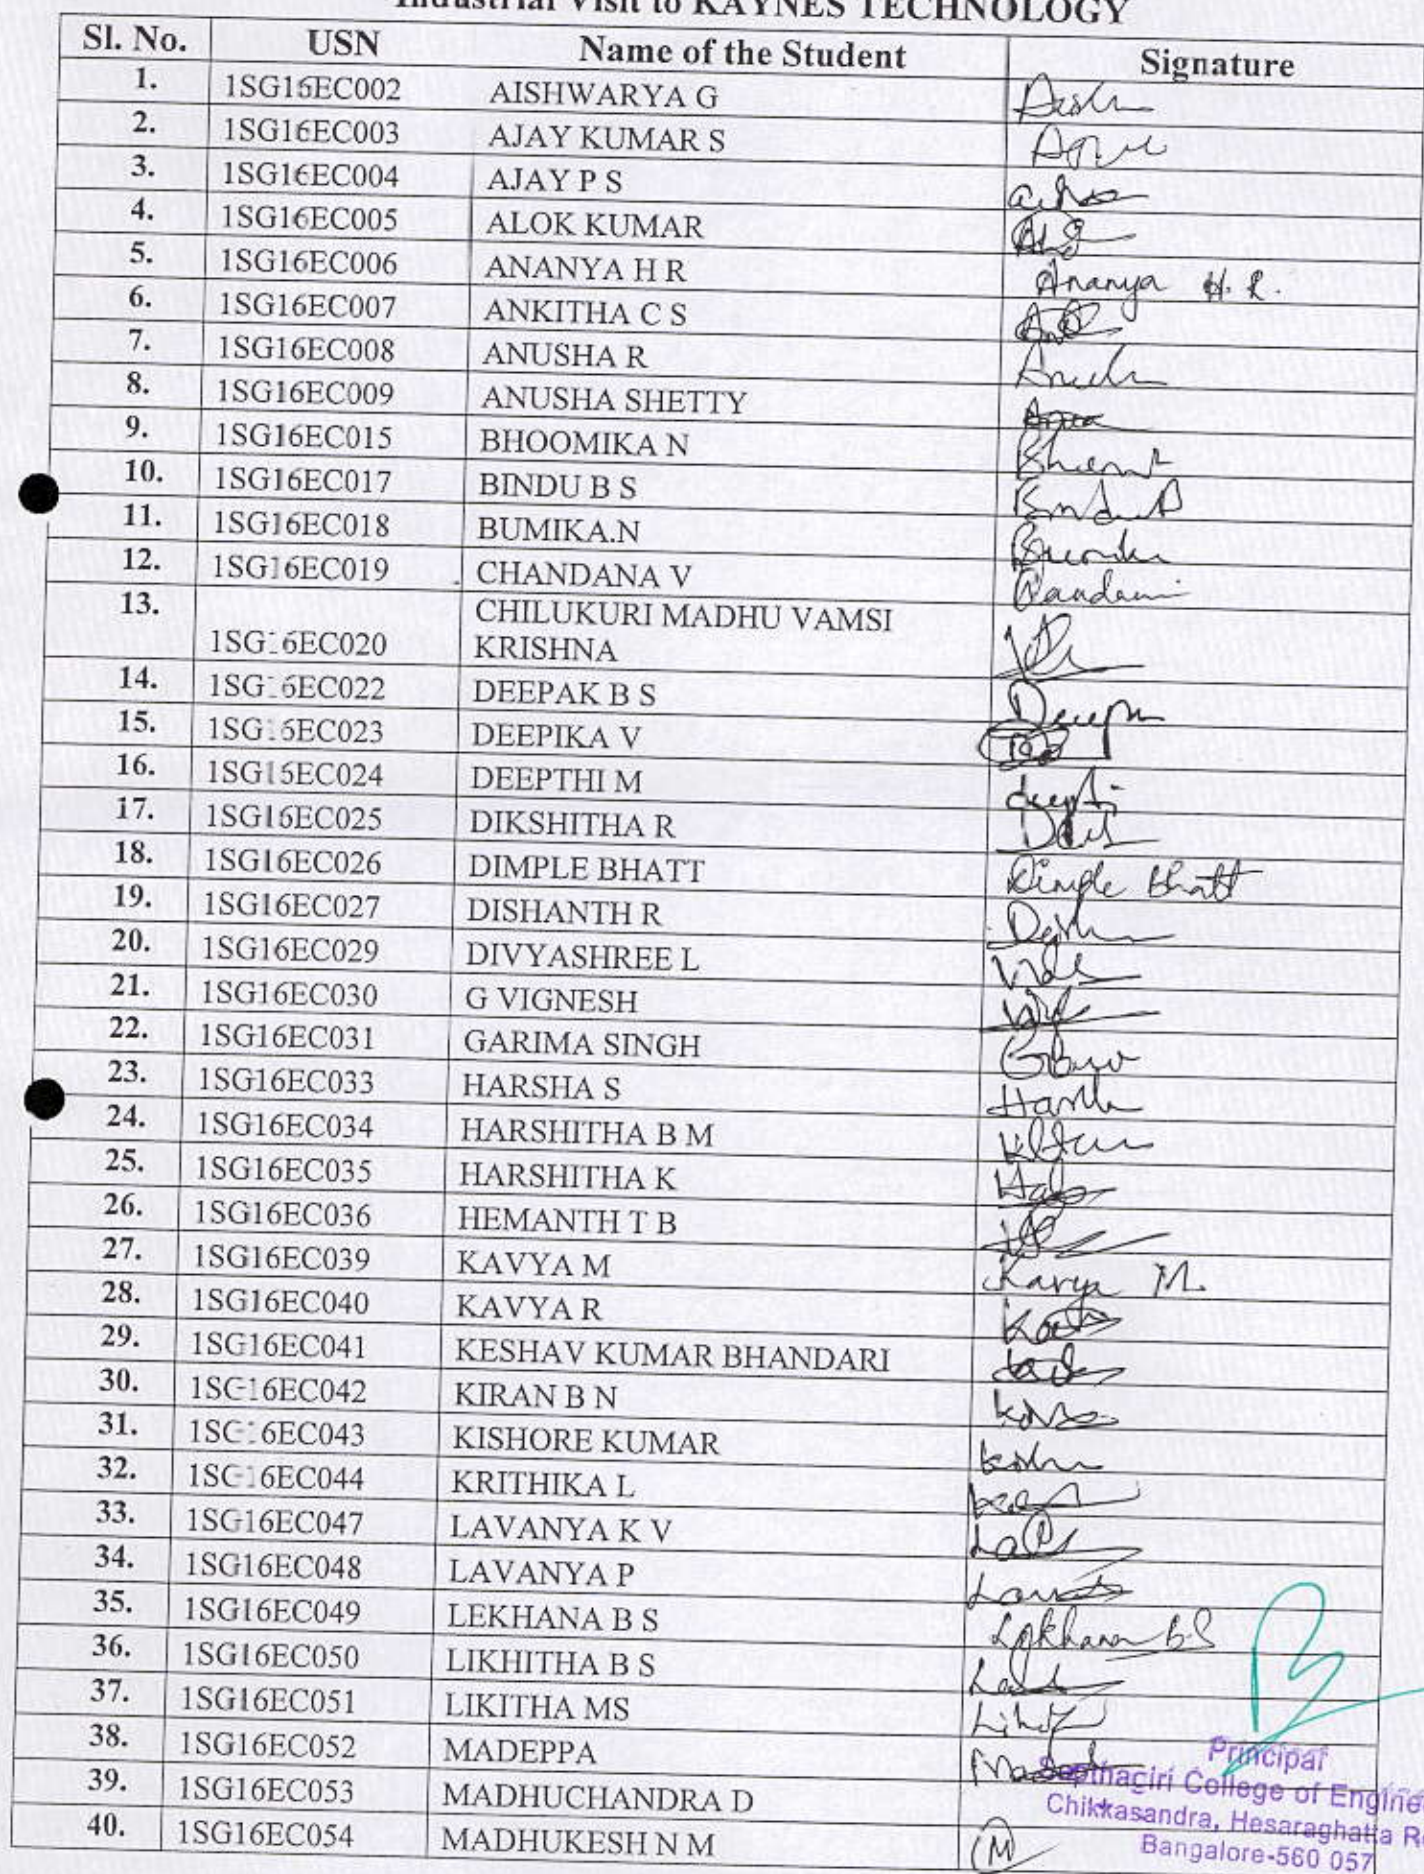 Industrial Visit to KAYNES TECHNOLOGY
Sl. No. USN Name of the Student Signature
1. 1SG16EC002 AISHWARYA G
2. 1SG16EC003 AJAY KUMAR S
3. 1SG16EC004 AJAY P S
4. 1SG16EC005 ALOK KUMAR
5. 1SG16EC006 ANANYA H R Ananya H.R.
6. 1SG16EC007 ANKITHA C S
7. 1SG16EC008 ANUSHA R
8. 1SG16EC009 ANUSHA SHETTY
9. 1SG16EC015 BHOOMIKA N
10. 1SG16EC017 BINDU B S
11. 1SG16EC018 BUMIKA.N
12. 1SG16EC019 CHANDANA V
13. CHILUKURI MADHU VAMSI
1SG16EC020 KRISHNA
14. 1SG16EC022 DEEPAK B S
15. 1SG16EC023 DEEPIKA V
16. 1SG16EC024 DEEPTHI M
17. 1SG16EC025 DIKSHITHA R
18. 1SG16EC026 DIMPLE BHATT Dimple Bhatt
19. 1SG16EC027 DISHANTH R
20. 1SG16EC029 DIVYASHREE L
21. 1SG16EC030 G VIGNESH
22. 1SG16EC031 GARIMA SINGH
23. 1SG16EC033 HARSHA S
24. 1SG16EC034 HARSHITHA B M
25. 1SG16EC035 HARSHITHA K
26. 1SG16EC036 HEMANTH T B
27. 1SG16EC039 KAVYA M Kavya M.
28. 1SG16EC040 KAVYA R
29. 1SG16EC041 KESHAV KUMAR BHANDARI
30. 1SG16EC042 KIRAN B N
31. 1SG16EC043 KISHORE KUMAR
32. 1SG16EC044 KRITHIKA L
33. 1SG16EC047 LAVANYA K V
34. 1SG16EC048 LAVANYA P
35. 1SG16EC049 LEKHANA B S Lekhana B S
36. 1SG16EC050 LIKHITHA B S
37. 1SG16EC051 LIKITHA MS
38. 1SG16EC052 MADEPPA
Principal
39. 1SG16EC053 MADHUCHANDRA D
Sapthagiri College of Engine
Chikkasandra, Hesaraghatta R
40. 1SG16EC054 MADHUKESH N M M
Bangalore-560 057